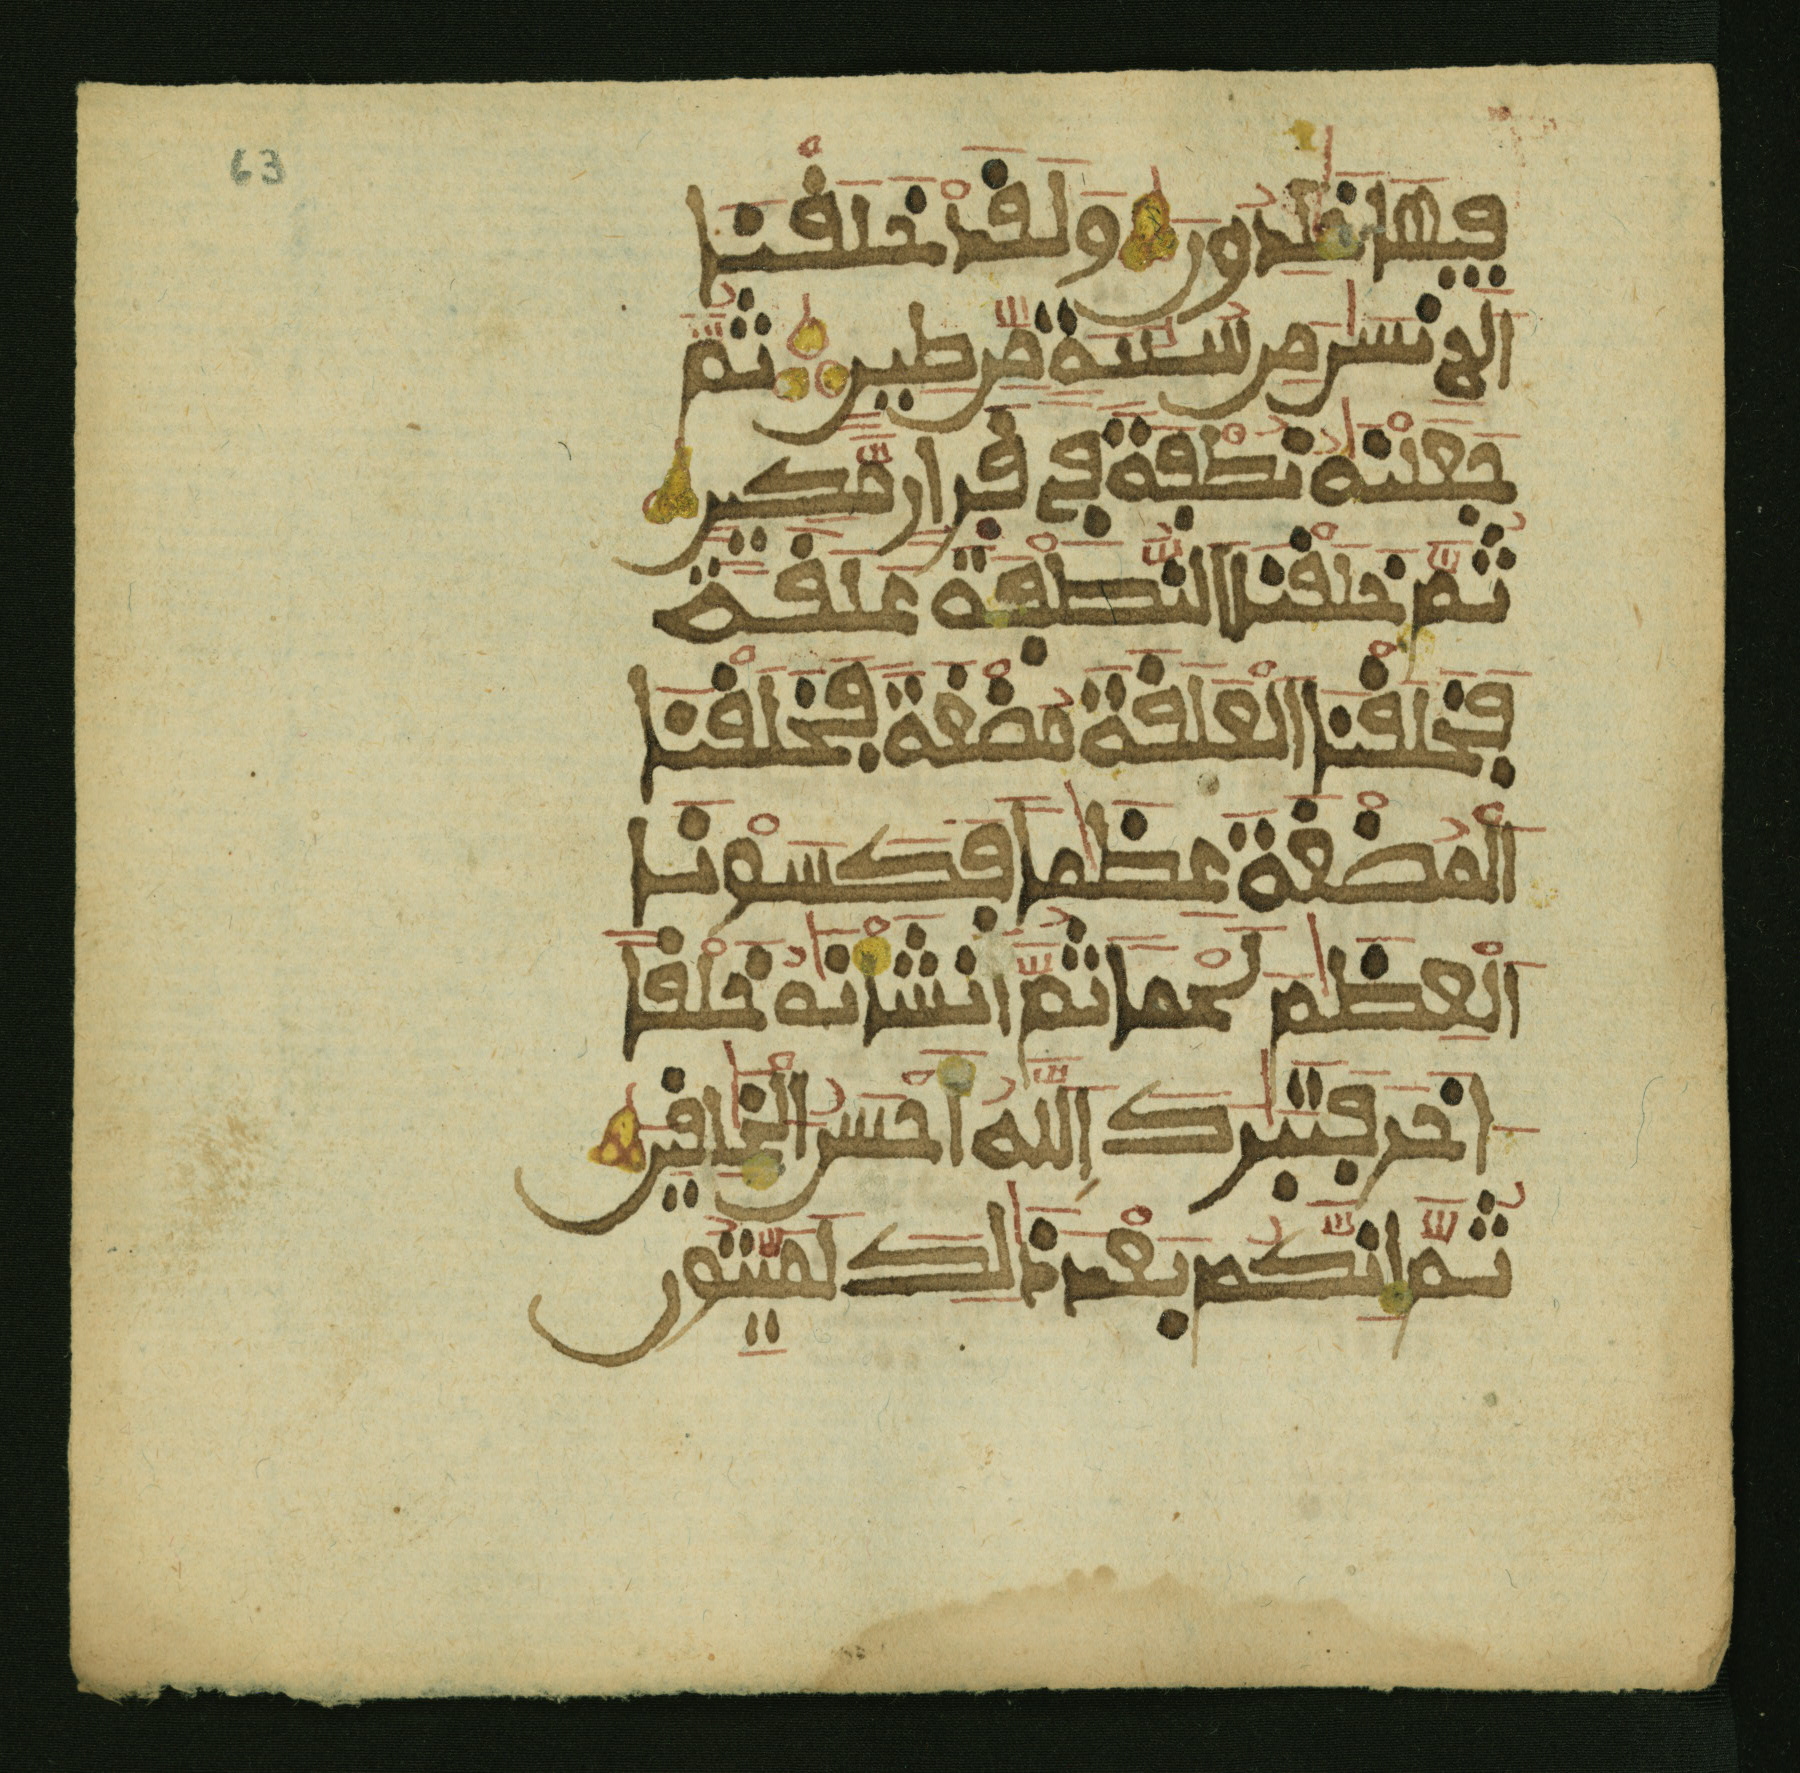 63
فيها خلدون ولقد خلقنا
الانسن من سللة من طين ثم
جعلنه نطفة في قرار مكين
ثم خلقنا النطفة علقة
فخلقنا العلقة مضغة فخلقنا
المضغة عظما فكسونا
العظم لحما ثم انشانه خلقا
اخر فتبرك الله احسن الخلقين
ثم انكم بعد ذلك لميتون